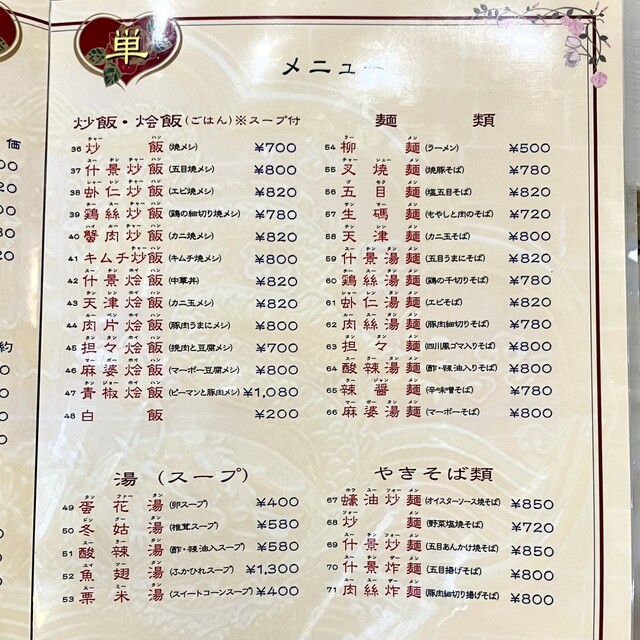 単
メニュー
炒飯・烩飯(ごはん)※スープ付
36 炒飯(焼メシ) ¥700
37 什景炒飯(五目焼メシ) ¥800
38 虾仁炒飯(エビ焼メシ) ¥820
39 鶏絲炒飯(鶏の細切り焼メシ) ¥780
40 蟹肉炒飯(カニ焼メシ) ¥820
41 キムチ炒飯(キムチ焼メシ) ¥800
42 什景烩飯(中華丼) ¥820
43 天津烩飯(カニ玉メシ) ¥820
44 肉片烩飯(豚肉うまにメシ) ¥800
45 担々烩飯(挽肉と豆腐メシ) ¥700
46 麻婆烩飯(マーボー豆腐メシ) ¥800
47 青椒烩飯(ピーマンと豚肉メシ) ¥1,080
48 白飯 ¥200
湯(スープ)
49 蛋花湯(卵スープ) ¥400
50 冬姑湯(椎茸スープ) ¥580
51 酸辣湯(酢・辣油入スープ) ¥580
52 魚翅湯(ふかひれスープ) ¥1,300
53 栗米湯(スイートコーンスープ) ¥400
麺類
54 柳麺(ラーメン) ¥500
55 叉焼麺(焼豚そば) ¥780
56 五目麺(塩五目そば) ¥820
57 生碼麺(もやしと肉のそば) ¥780
58 天津麺(カニ玉そば) ¥820
59 什景湯麺(五目うまにそば) ¥820
60 鶏絲湯麺(鶏の千切りそば) ¥780
61 虾仁湯麺(エビそば) ¥820
62 肉絲湯麺(豚肉細切りそば) ¥800
63 担々麺(四川風ゴマ入りそば) ¥800
64 酸辣湯麺(酢・辣油入りそば) ¥800
65 辣醤麺(辛味噌そば) ¥780
66 麻婆湯麺(マーボーそば) ¥800
やきそば類
67 蠔油炒麺(オイスターソース焼そば) ¥850
68 炒麺(野菜塩焼そば) ¥720
69 什景炒麺(五目あんかけ焼そば) ¥800
70 什景炸麺(五目揚げそば) ¥800
71 肉絲炸麺(豚肉細切り揚げそば) ¥800